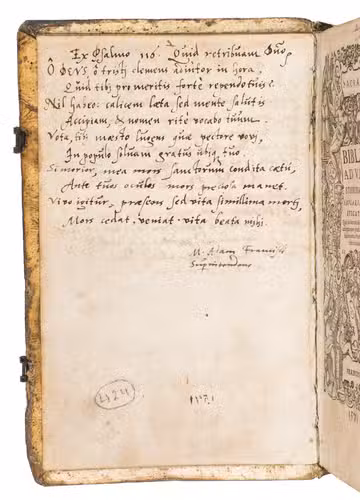 Ex Psalmo 116. Quid retribuam Dno.
Ô DEUS, ô tristi clemens aditor in hora,
Quid tibi pro meritis forte rependo tuis?
Nil habeo: calicem laeta sed mente salutis
Accipiam, & nomen rite vocabo tuum.
Vota, tibi maesto lugens quae pectore vovi,
In populo solvam gratus ubique tuo
Si morior, mea mors sanctorum condita caetu,
Ante tuos oculos mors preciosa manet.
Vivo igitur, praesens sed vita simillima morti,
Mors cedat, veniat vita beata mihi.
M. Adam Francisci
1424
BIBLIA
AD VE